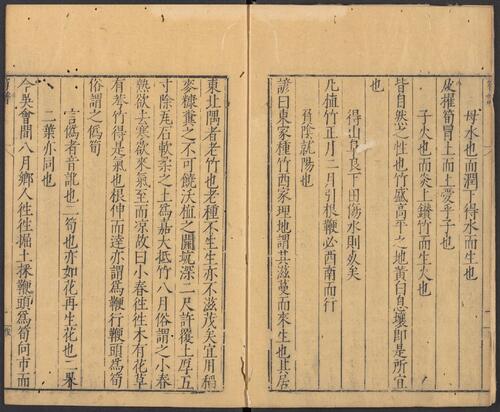 母水也而潤下得水而生也
故擢筍冒土而上愛乎子也
子火也而炎上鑽竹而生火也
皆自然之性也竹盛高平之地黃白息壤即是所宜
也
得山阜良下田傷水則
凡植竹正月二月引根鞭必西南而行
負陰就陽也
諺曰東家種竹西家理地謂其滋蔓而來生也其居
東北隅者老竹也老種不生生亦不滋茂矣宜用稻
麥糠糞之不可饒沃植之開坑深二尺許覆土厚五
寸除瓦石軟柔之土爲嘉大抵竹八月俗謂之小春
熱欲去寒欲來氣至而涼故曰小春徃徃木有花草
有荂竹得是氣也根伸而達亦謂爲鞭行鞭頭爲筍
俗謂之僞筍
言僞者音訛也二筍也亦如花再生花也二
二葉亦同也
今吳會間八月鄉人徃徃掘土採鞭頭爲筍向市而